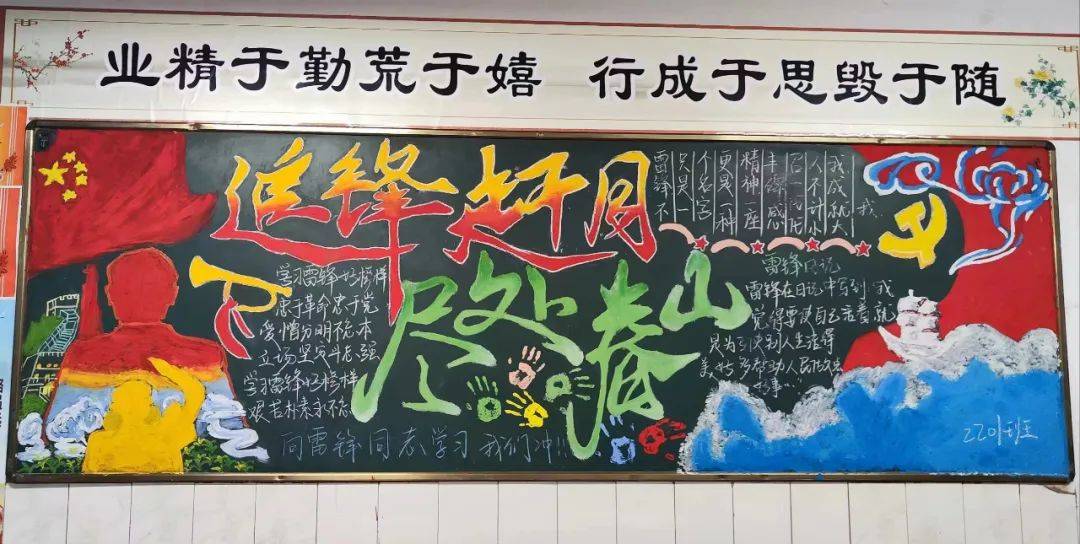 业精于勤荒于嬉 行成于思毁于随
追锋赶月
尽处春山
学习雷锋好榜样
忠于革命忠于党
爱憎分明不忘本
立场坚定斗志强
学习雷锋好榜样
艰苦朴素永不忘
向雷锋同志学习 我们冲!!!
雷锋不
只是一
个名字
更是一种
精神一座
丰碑感
召一代代
人不计小
我成就大
我
雷锋日记
雷锋在日记中写到 我
觉得要使自己活着就
是为了使别人生活得
美好 多帮助人民做点
好事……
2201班